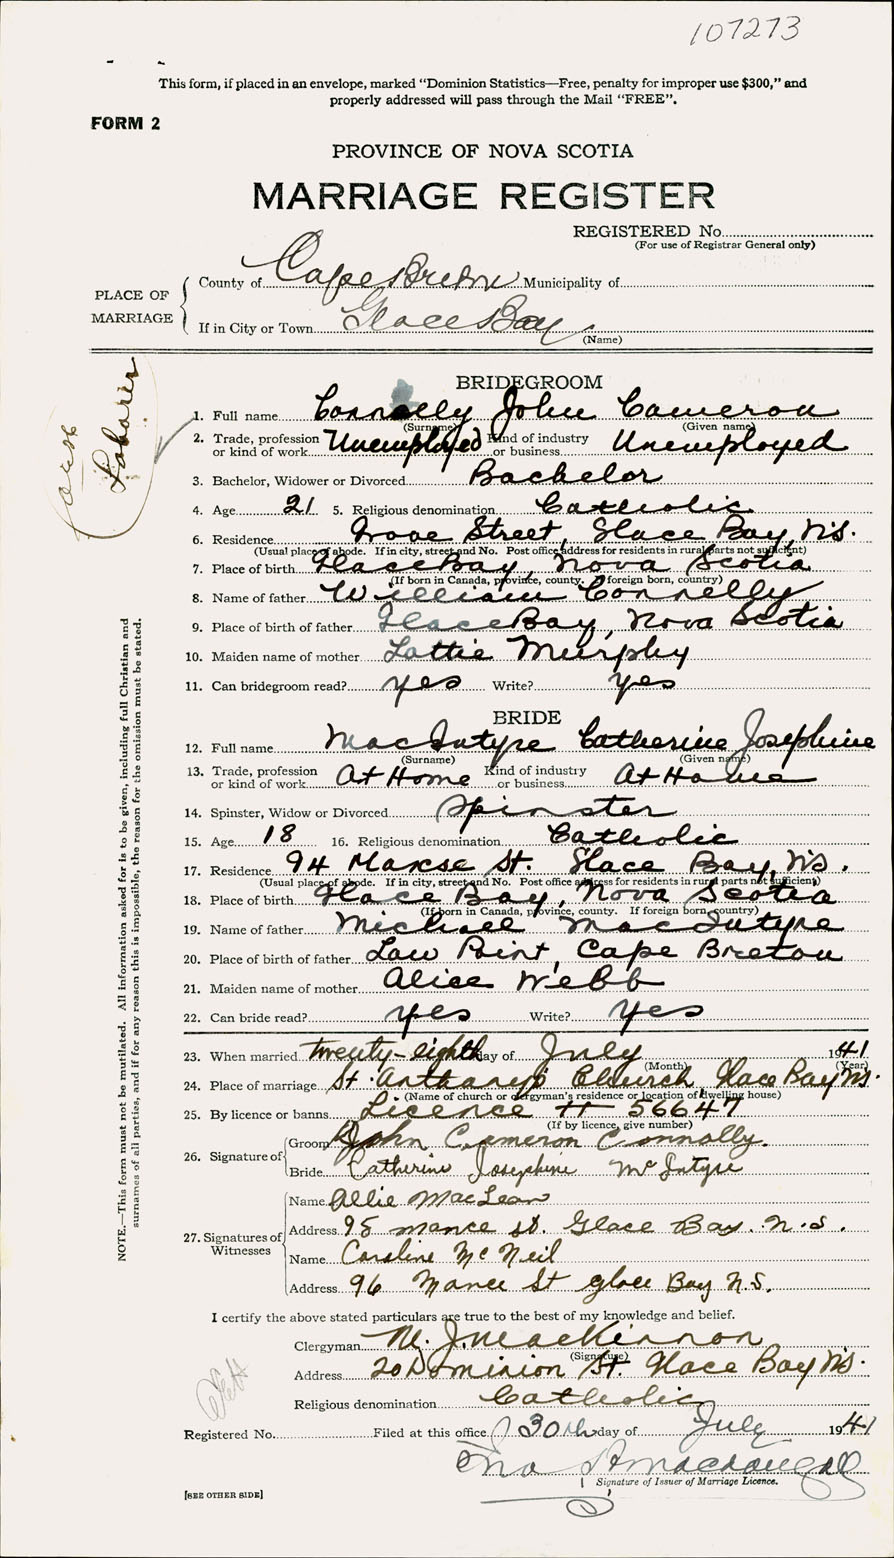 107273
This form, if placed in an envelope, marked “Dominion Statistics—Free, penalty for improper use $300,” and
properly addressed will pass through the Mail “FREE”.
FORM 2
PROVINCE OF NOVA SCOTIA
MARRIAGE REGISTER
REGISTERED No.
(For use of Registrar General only)
PLACE OF MARRIAGE
County of Cape Breton Municipality of
If in City or Town Glace Bay
(Name)
Laborer
BRIDEGROOM
1. Full name Connolly John Cameron
(Surname) (Given name)
2. Trade, profession or kind of work Unemployed Kind of industry or business Unemployed
3. Bachelor, Widower or Divorced Bachelor
4. Age 21 5. Religious denomination Catholic
6. Residence Street, Glace Bay, N.S.
(Usual place of abode. If in city, street and No. Post office address for residents in rural parts not sufficient)
7. Place of birth Glace Bay, Nova Scotia
(If born in Canada, province, county. If foreign born, country)
8. Name of father William Connelly
9. Place of birth of father Glace Bay, Nova Scotia
10. Maiden name of mother Lottie Murphy
11. Can bridegroom read? yes Write? yes
BRIDE
12. Full name MacIntyre Catherine Josephine
(Surname) (Given name)
13. Trade, profession or kind of work At Home Kind of industry or business At Home
14. Spinster, Widow or Divorced Spinster
15. Age 18 16. Religious denomination Catholic
17. Residence 94 St. Glace Bay, N.S.
(Usual place of abode. If in city, street and No. Post office address for residents in rural parts not sufficient)
18. Place of birth Glace Bay, Nova Scotia
(If born in Canada, province, county. If foreign born, country)
19. Name of father Michael MacIntyre
20. Place of birth of father Low Point, Cape Breton
21. Maiden name of mother Alice Webb
22. Can bride read? yes Write? yes
23. When married twenty-eighth day of July 1941
(Month) (Year)
24. Place of marriage St. Anthony's Church Glace Bay N.S.
(Name of church or clergyman's residence or location of dwelling house)
25. By licence or banns Licence # 56647
(If by licence, give number)
26. Signature of
Groom John Cameron Connolly.
Bride Catherine Josephine McIntyre
27. Signatures of Witnesses
Name Allie MacLean
Address 98 st. Glace Bay. N.S.
Name Caroline McNeil
Address 96 St Glace Bay N.S.
I certify the above stated particulars are true to the best of my knowledge and belief.
Clergyman M. J. MacKinnon
(Signature)
Address 20 Dominion St. Glace Bay N.S.
Religious denomination Catholic
Registered No. Filed at this office 30th day of July 1941
Signature of Issuer of Marriage Licence.
[SEE OTHER SIDE]
NOTE.—This form must not be mutilated. All information asked for is to be given, including full Christian and
surnames of all parties, and if for any reason this is impossible, the reason for the omission must be stated.